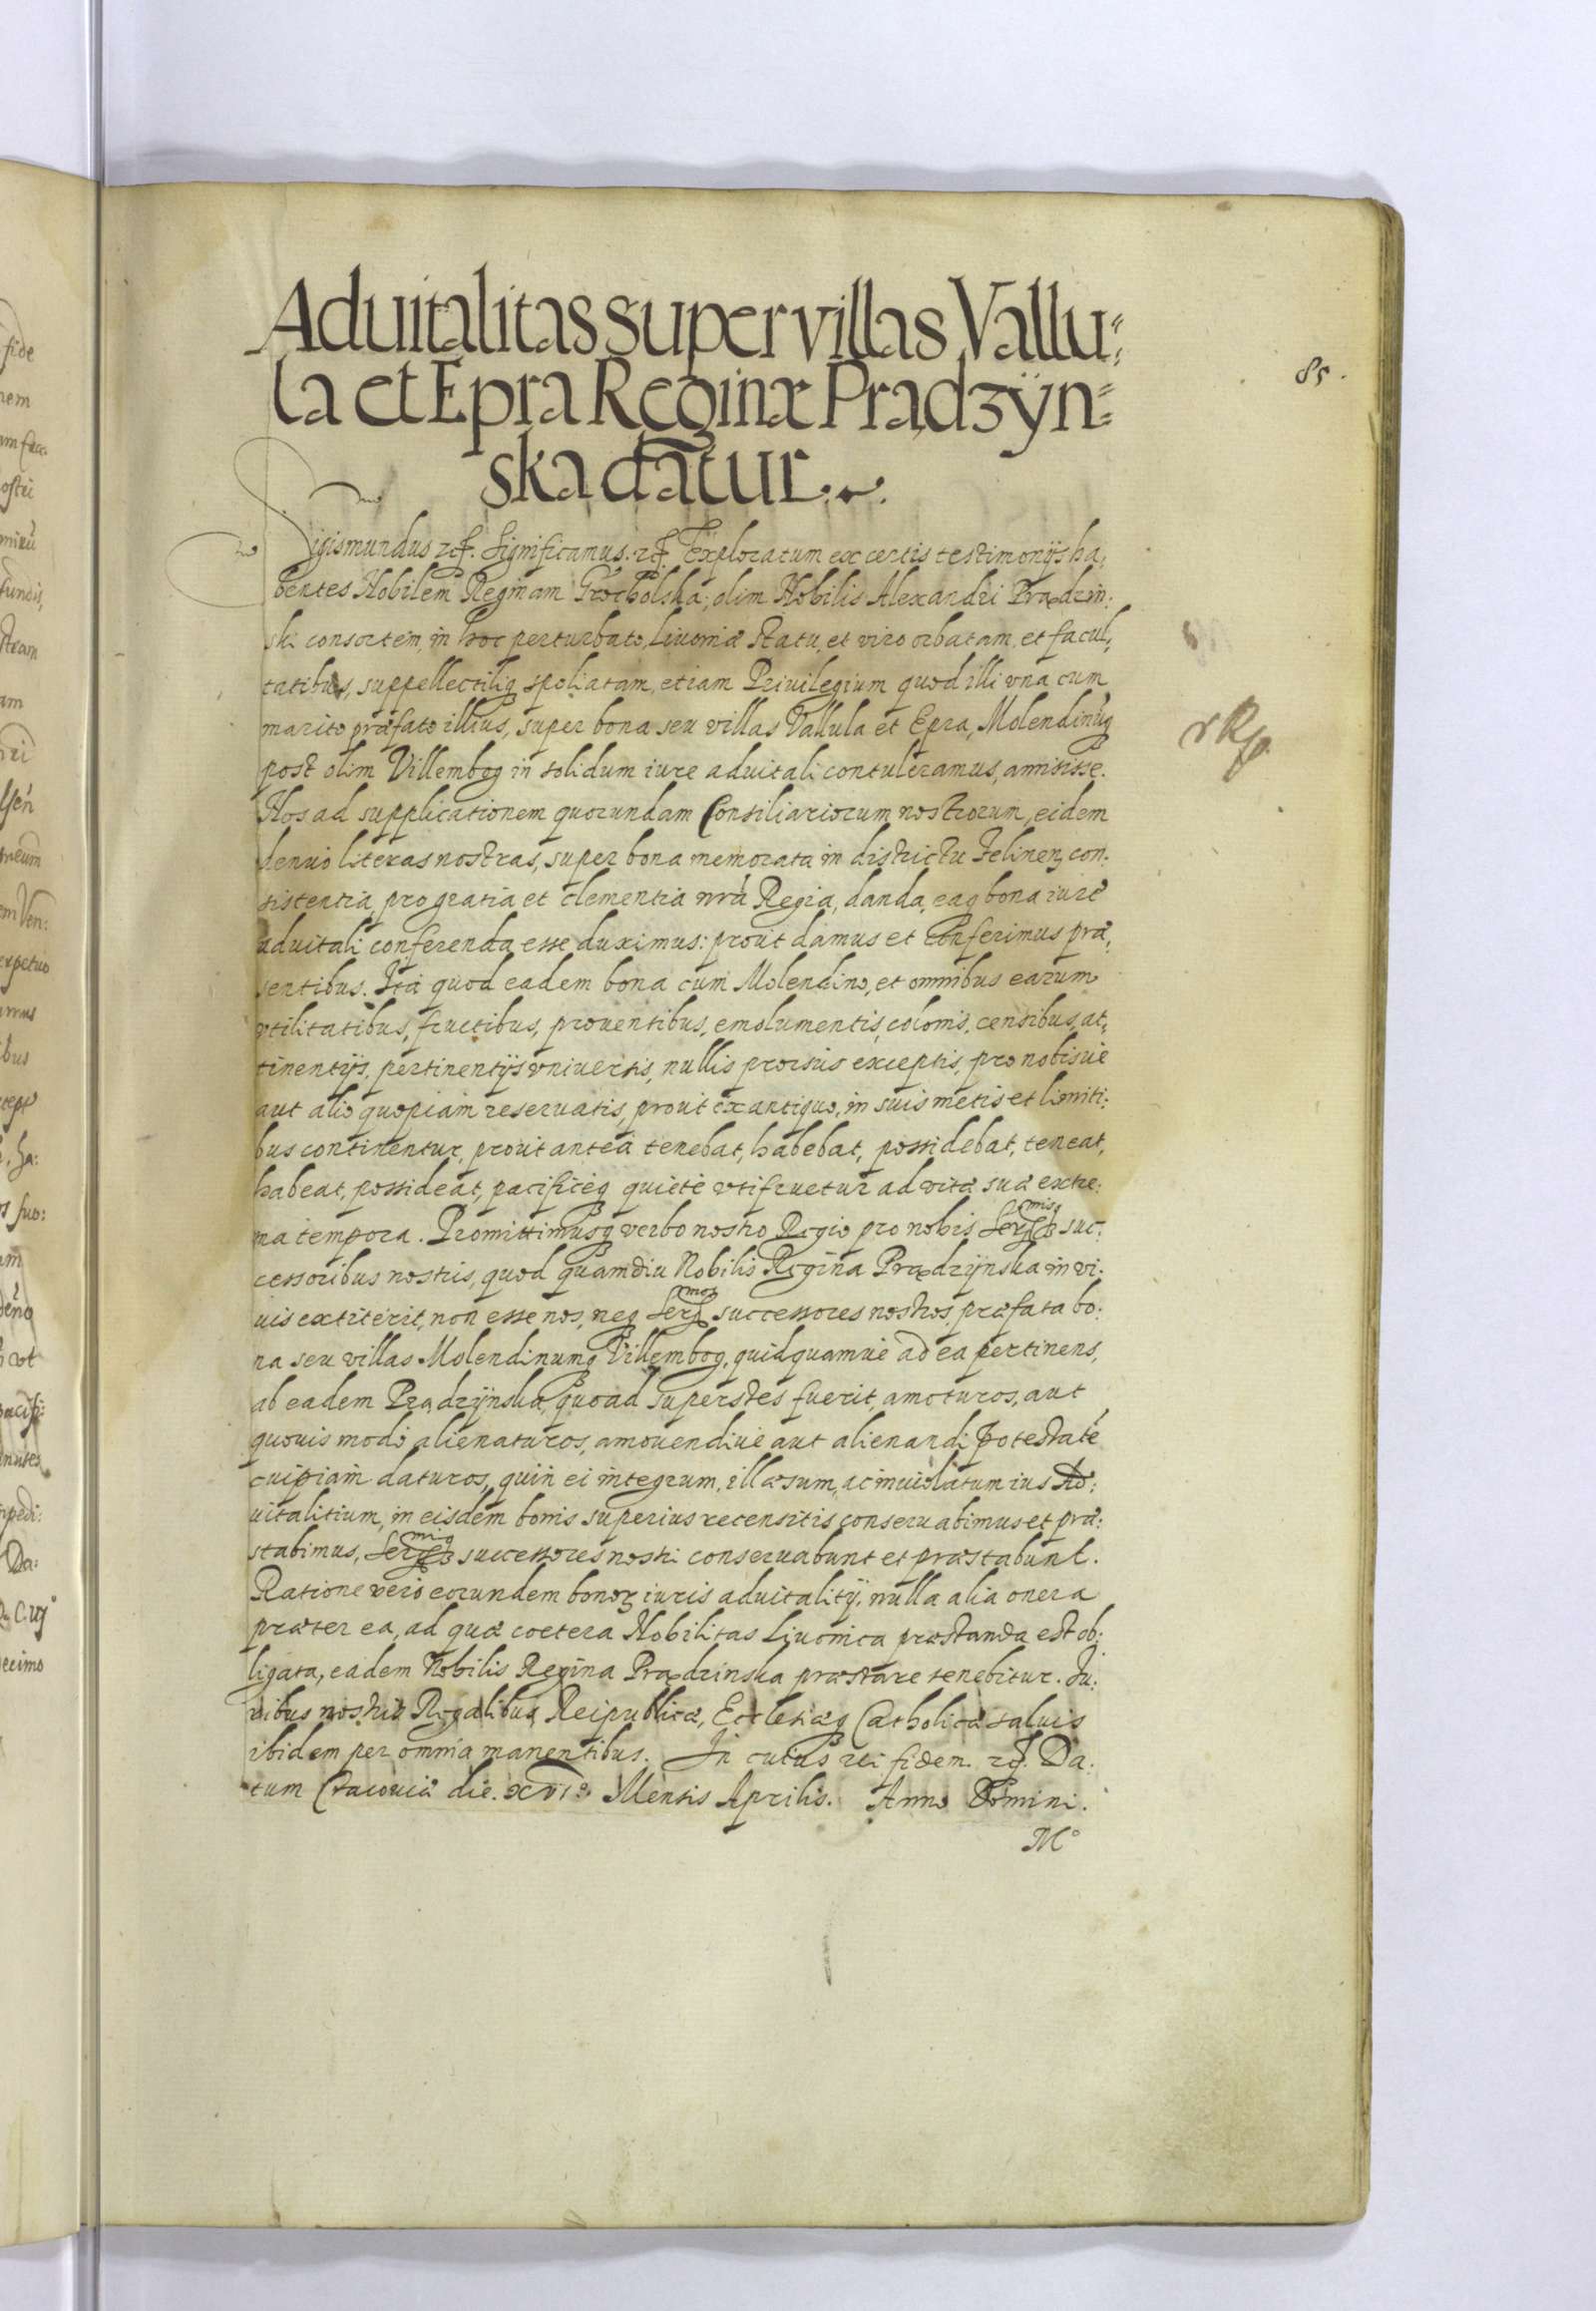 Aduitalitas super villas Vallu⸗
la et Epra Reginæ Prądzÿn⸗
ska datur.
85.
Sigismundus etc. Significamus. etc. Exploratum ex certis testimonijs ha,
bentes Nobilem Reginam Grocholska, olim Nobilis Alexandri Prądzin:
ski consortem, in hoc perturbato Liuoniæ statu, et viro orbatam, et facul,
tatibus, suppellectiliq spoliatam, etiam Priuilegium quod illi vna cum
marito præfato illius, super bona seu villas Vallula et Epra, Molendinuq
rRp
post olim Villembog in solidum iure aduitali contuleramus, amisisse.
Nos ad supplicationem quorundam Consiliariorum nostrorum, eidem
denuo literas nostras, super bona memorata in districtu Felinen, con:
sistentia, pro gratia et clementia nrã Regia, danda, eaq bona iure
aduitali conferenda esse duximus: prout damus et conferimus præ,
sentibus. Ita quod eadem bona cum Molendino, et omnibus earum
vtilitatibus, fructibus, prouentibus, emolumentis, colonis, censibus, at,
tinentijs, pertinentijs vniuersis, nullis prorsus exceptis, pro nobisue
aut alio quopiam reseruatis, prout ex antiquo, in suis metis et limiti:
bus continentur, prout antea tenebat, habebat, possidebat, teneat,
habeat, possideat, pacificeq quiete vtifruetur ad vitæ suæ extre:
ma tempora. Promittimusq verbo nostro Regio pro nobis Sermisq suc:
cessoribus nostris, quod quamdiu Nobilis Regina Prądzijnska in vi:
uis extiterit, non esse nos, neq Sermos successores nostros, præfata bo:
na seu villas Molendinumq Villembog, quidquamue ad ea pertinens,
ab eadem Prądzijnska, quoad superstes fuerit, amoturos, aut
quouis modo alienaturos, amouendiue aut alienandi potestatē
cuipiam daturos, quin ei integrum, illæsum, ac inuiolatum ius Ad:
uitalitium, in eisdem bonis superius recensitis conseruabimus et præ:
stabimus, Sermiq successores nostri conseruabunt et præstabunt.
Ratione vero eorundem bonoꝝ iuris aduitalitij, nulla alia onera
præter ea, ad quæ coetera Nobilitas Liuonica præstanda est ob:
ligata, eadem Nobilis Regina Prądzinska præstare tenebitur. Iu:
ribus nostris Regalibus, Reipublicæ, Ecclesiæq Catholicæ saluis
ibidem per omnia manentibus. In cuius rei fidem. etc. Da:
tum Cracouiæ die. XVIo. Mensis Aprilis. Anno Domini.
M°